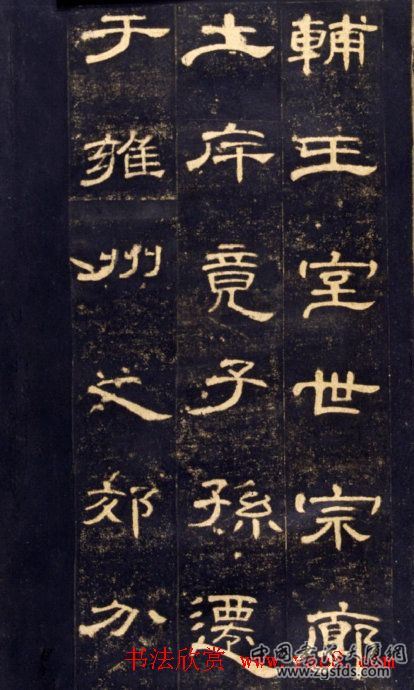 輔王室世宗廓
土斥竟子孫遷
于雍州之郊分
书法欣赏 www.yac8.com
www.zgsfds.com